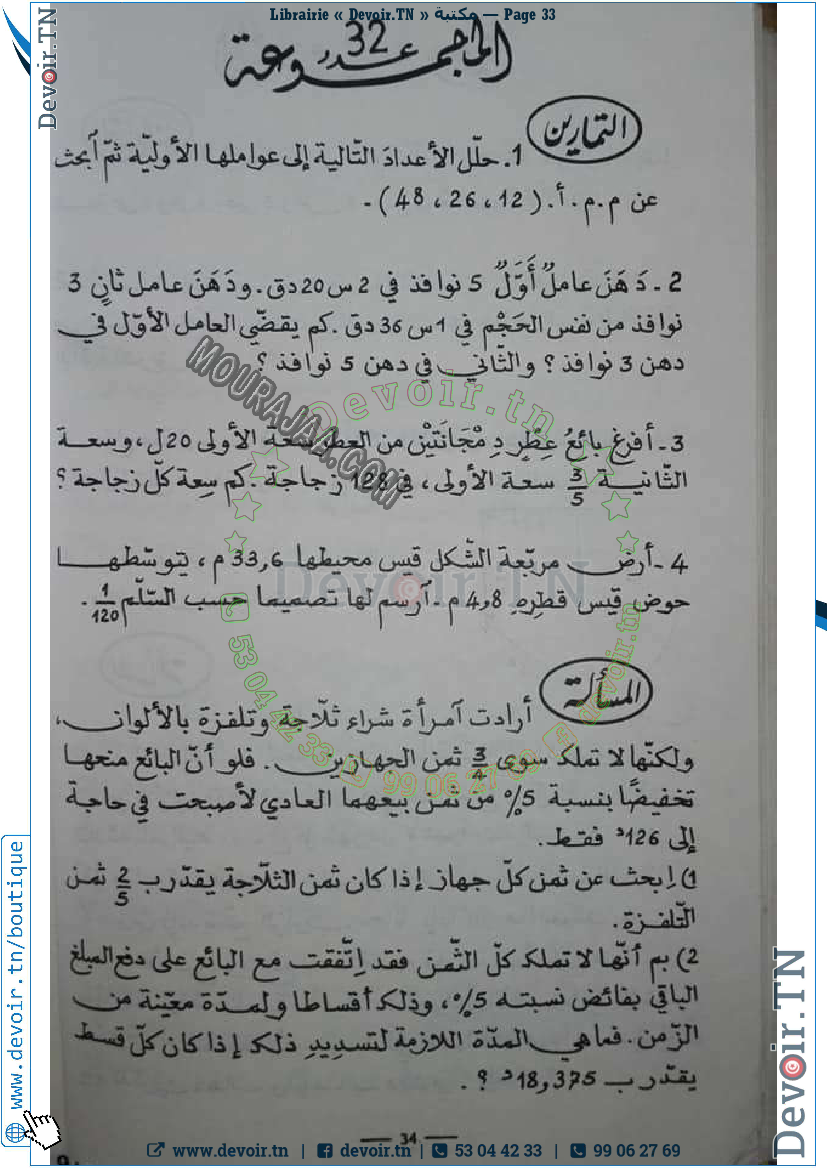 Librairie « Devoir.TN » مكتبة — Page 33
المجموعة عدد 32
التمارين
1. حلّل الأعداد التالية إلى عواملها الأوليّة ثمّ آبحث
عن م.م.أ. (12 ، 26 ، 48) .
2 - دَهَنَ عاملٌ أَوّلٌ 5 نوافذ في 2 س 20 دق . ودَهَنَ عامل ثانٍ 3
نوافذ من نفس الحَجْم في 1س 36 دق . كم يقضّي العامل الأوّل في
دهن 3 نوافذ ؟ والثّاني في دهن 5 نوافذ ؟
3 - أفرغ بائعُ عِطْرٍ دِمْجَانَتَيْنِ من العطر سعة الأولى 20ل ، وسعة
الثّانية 3/5 سعة الأولى ، في 128 زجاجة . كم سِعة كلّ زجاجة ؟
4 - أرض مربّعة الشّكل قيس محيطها 33,6 م ، يتوسّطها
حوض قيس قطره 4,8 م . آرسم لها تصميما حسب السّلّم 1/120 .
المسألة
أرادت آمرأة شراء ثلّاجة وتلفزة بالألوان ،
ولكنّها لا تملك سوى 3/4 ثمن الجهازين . فلو أنّ البائع منحها
تخفيضًا بنسبة 5% من ثمن بيعهما العادي لأصبحت في حاجة
إلى 126د فقط .
1) إبحث عن ثمن كلّ جهاز إذا كان ثمن الثلّاجة يقدّر ب 2/5 ثمن
التّلفزة .
2) بم أنّها لا تملك كلّ الثّمن فقد إتّفقت مع البائع على دفع المبلغ
الباقي بفائض نسبته 5% ، وذلك أقساطا ولمدّة معيّنة من
الزّمن . فما هي المدّة اللازمة لتسديد ذلك إذا كان كلّ قسط
يقدّر ب 18,375د ؟ .
34
www.devoir.tn | devoir.tn | 53 04 42 33 | 99 06 27 69
Devoir.TN
www.devoir.tn/boutique
Devoir.TN
MOURAJAA.COM
@evoir.tn
Devoir.TN
53 04 42 33
99 06 27 69
devoir.tn